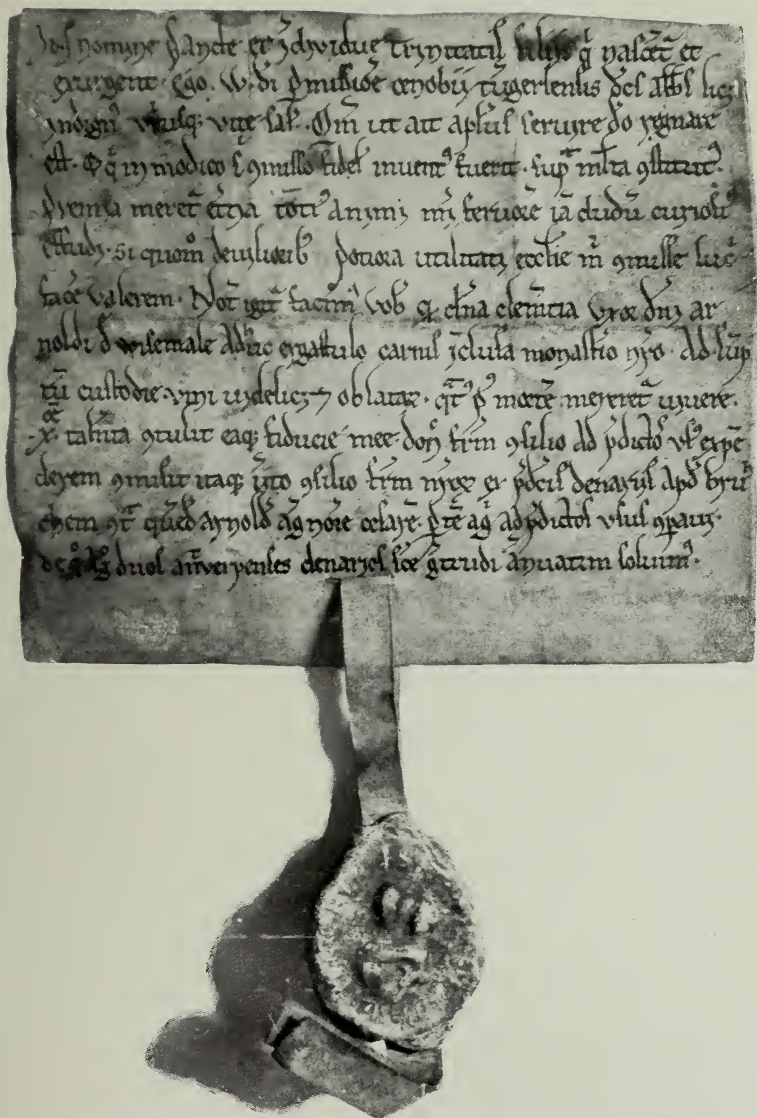 In nomine sancte et individue trinitatis filiis q̄ nascēt̄ et
exurgent. Ego. W. di p̄missiōe cenobii tūgerlensis dc̄s abb̄s lic&
indign᷒ utriusq; vite sal̄. Qm̄ ut ait apl̄us servire dō regnare
est. & q̄ in modico s̄ 9misso fidel᷒ invent᷒ fuerit. sup̄ ml̄ta 9stitut᷒.
premia meret̄ et̄na toti᷒ animi mi fervore iā dudū
si quom̊ devilioribꝰ potiora utilitati ecclie m̄ 9misse luc̄
facē valerem. Not̄ igit̄ facim᷒ vob̄ q̄ clemētia uxor dn̄i ar
noldi d̄ wisemale adhuc ergastulo carnis īclusa monast̄io nr̄o. Ad sūp
tū custodie vini videlic& ⁊ oblatar̄. q̄t̄ p᷒ mortē mereret̄ vivere.
.x. talēta 9tulit eaq; fiducie mee don̄ fr̄m 9silio ad p̄dictos us᷒ expē
derem 9misit itaq; inito 9silio fr̄m nr̄or̄ ex p̄dc̄is denariis apd̄
chem 9t̄ quēd̄ arnold̄ agnōīe p̄tē ag̊ ad p̄dictos usus 9paravi.
de q̊ duos antverpenses denarios sc̄e ḡtrudi annuatim solvim᷒.